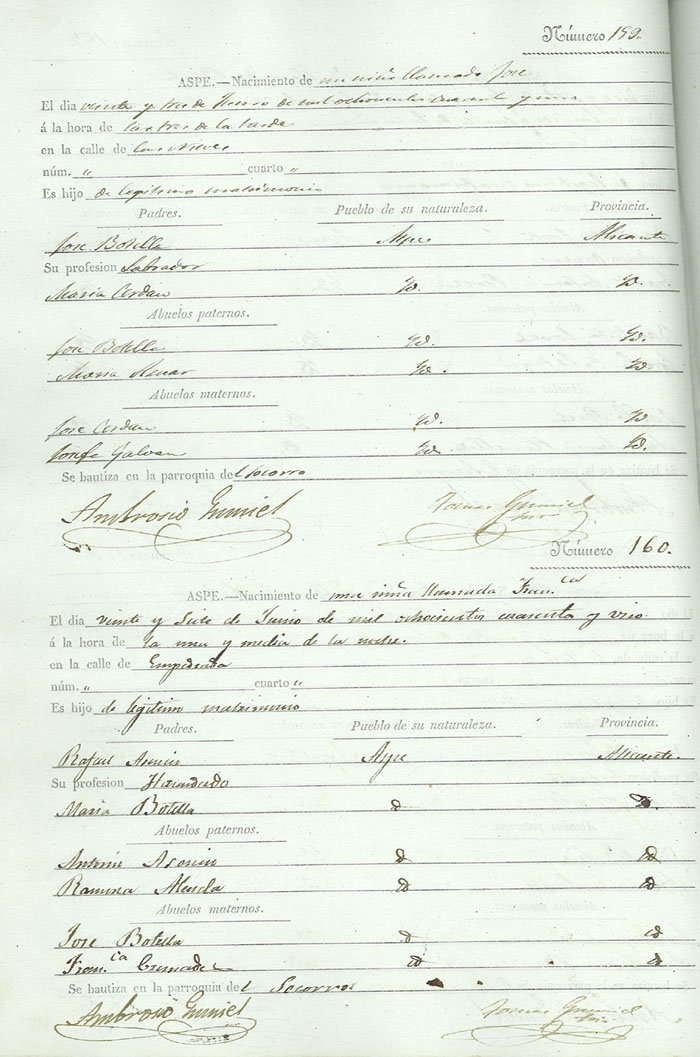 Número 159.
ASPE.—Nacimiento de un niño llamado Jose
El dia veinte y tres de Junio de mil ochocientos cuarenta y uno
á la hora de las tres de la tarde
en la calle de las Nieves
núm. " cuarto "
Es hijo de legitimo matrimonio
Padres. Pueblo de su naturaleza. Provincia.
Jose Botella Aspe Alicante
Su profesion Labrador
Maria Cerdan Yd. Yd.
Abuelos paternos.
Jose Botella Yd. Yd.
Maria Yd. Yd.
Abuelos maternos.
Jose Cerdan Yd. Yd
Josefa Galvan Yd Yd
Se bautiza en la parroquia del Socorro
Ambrosio Gumiel Tomas Gumiel
Número 160.
ASPE.—Nacimiento de una niña llamada Fran.ca
El dia veinte y Siete de Junio de mil ochocientos cuarenta y uno
á la hora de la una y media de la noche.
en la calle de Empedrada
núm. " cuarto "
Es hijo de legitimo matrimonio
Padres. Pueblo de su naturaleza. Provincia.
Rafael Asencio Aspe Alicante.
Su profesion Hacendado
Maria Botella d d.
Abuelos paternos.
Antonio Asencio d d
Ramona d d
Abuelos maternos.
Jose Botella d d
Fran.ca d d
Se bautiza en la parroquia del Socorro
Ambrosio Gumiel Tomas Gumiel